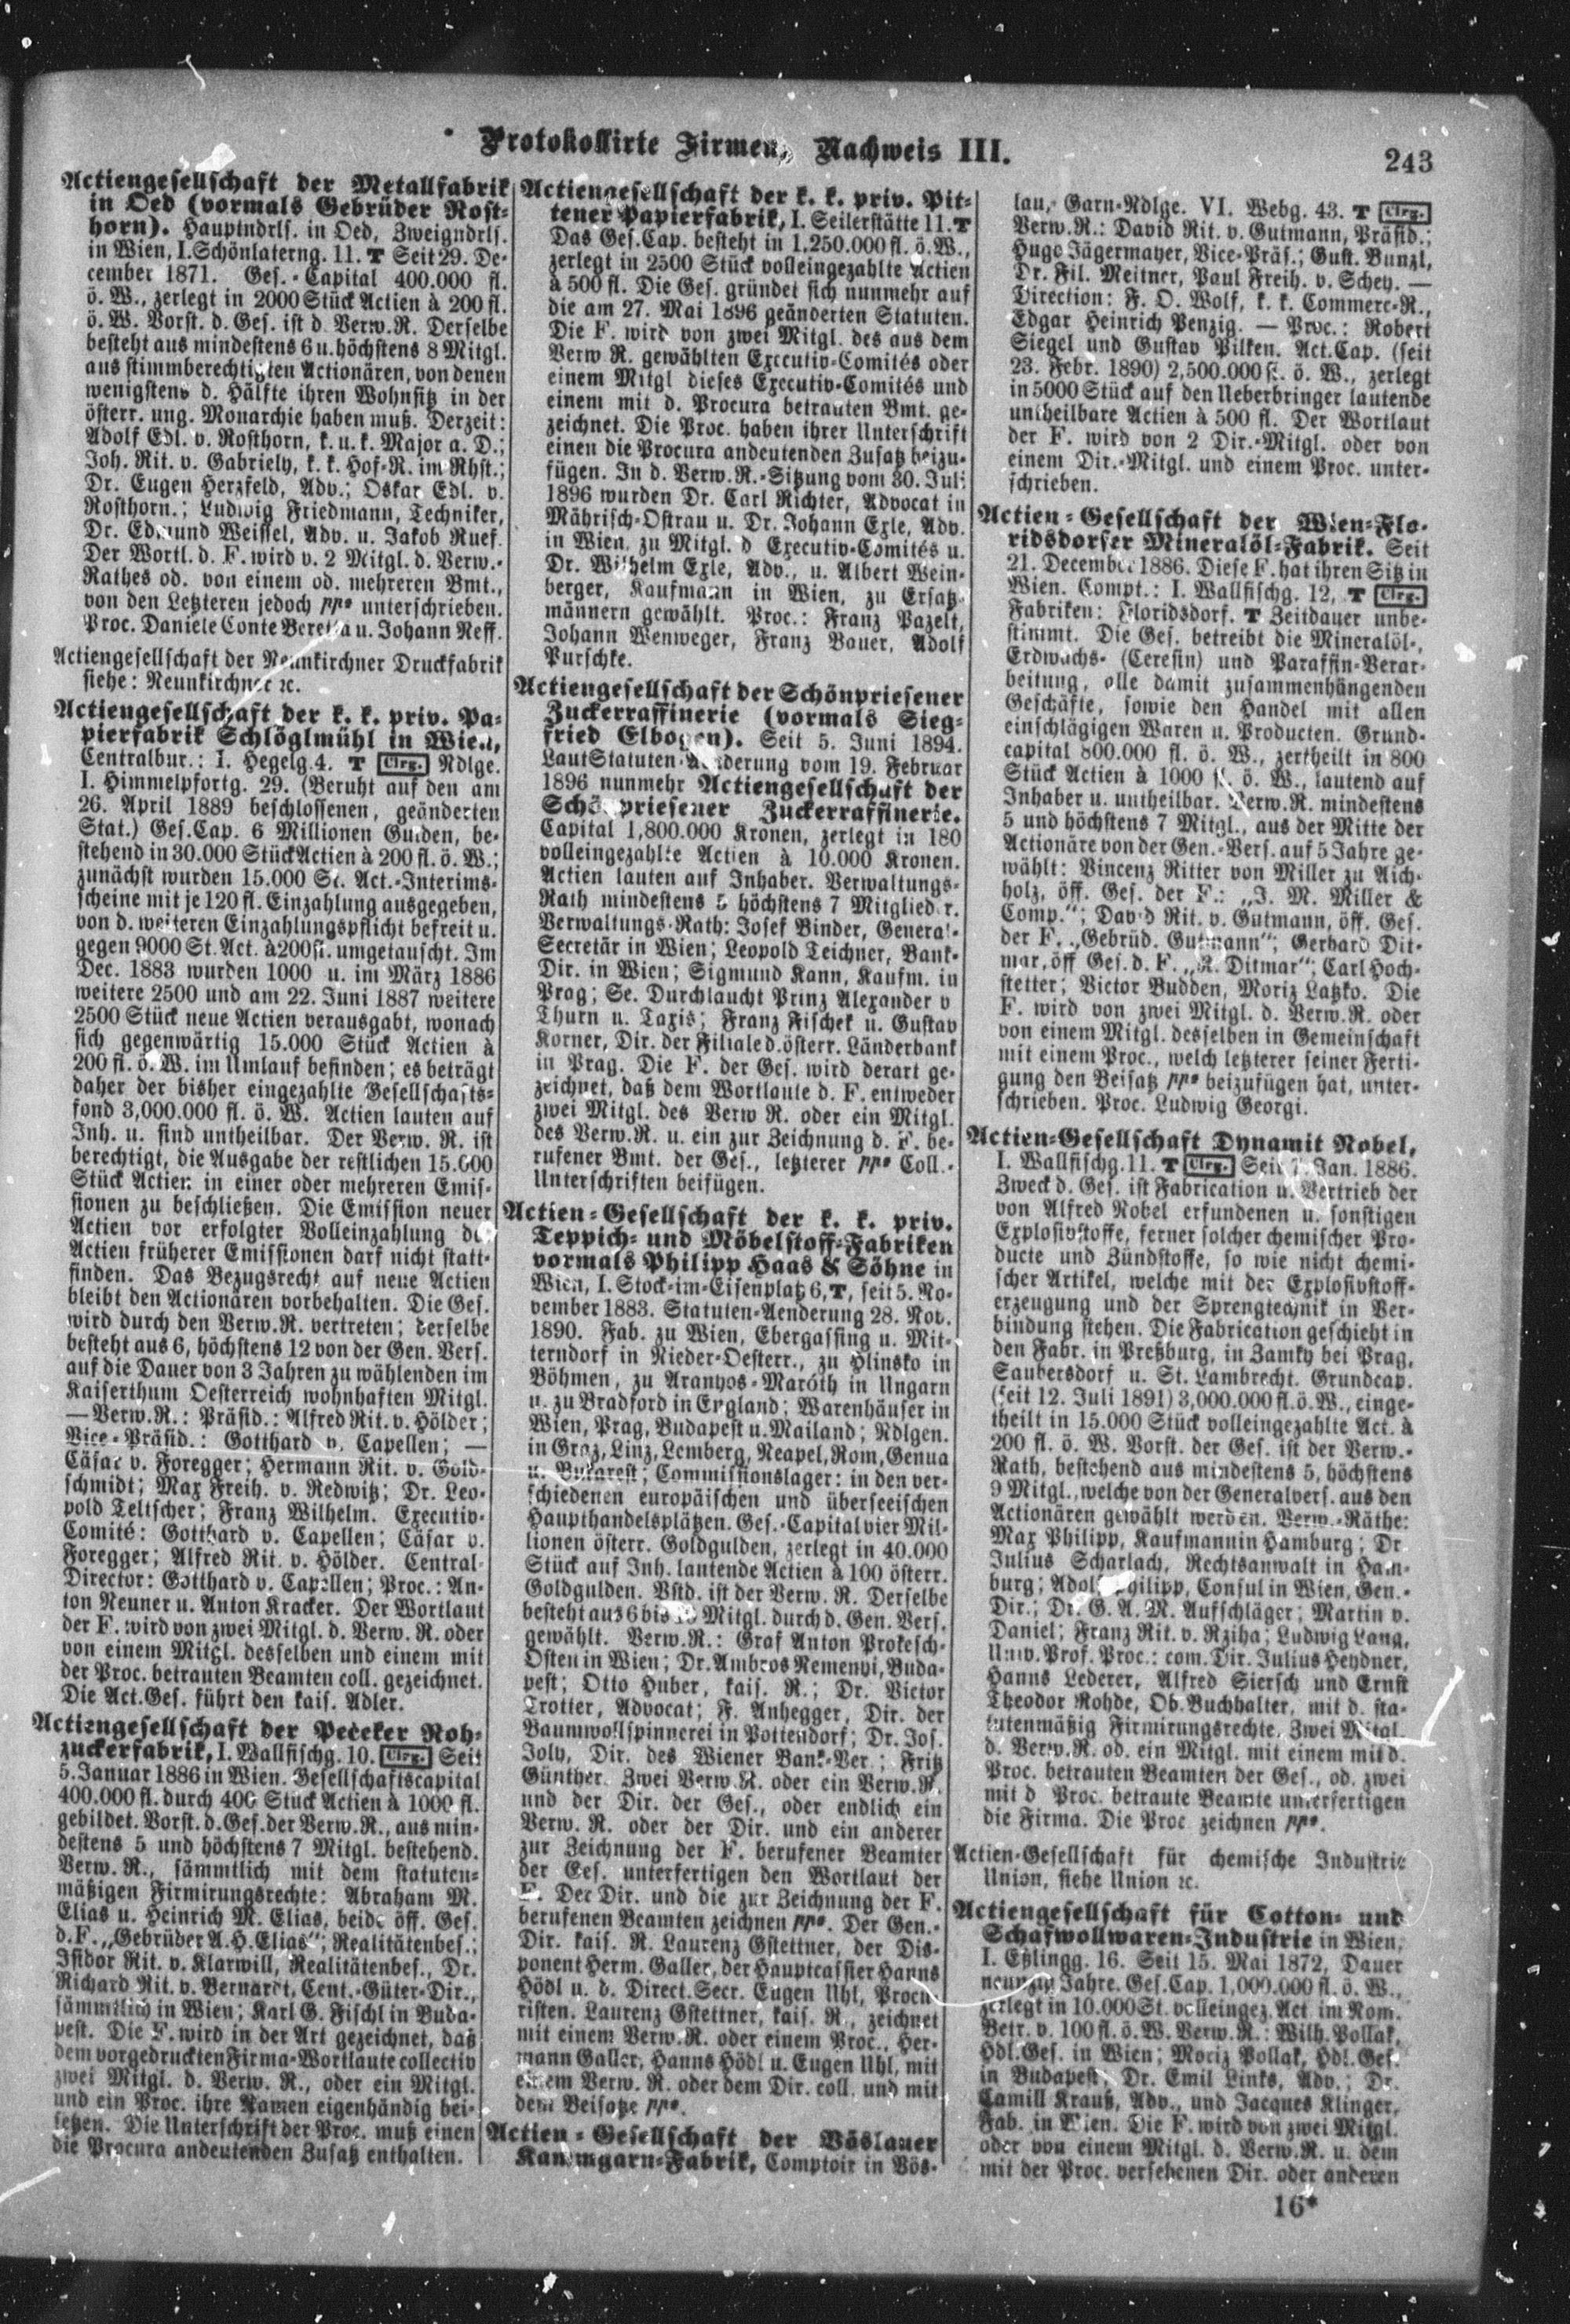 Protokollirte Firmen, Nachweis III.
243
Actiengesellschaft der Metallfabrik
in Oed (vormals Gebrüder Rost-
horn). Hauptndrls. in Oed, Zweigndrls.
in Wien, I. Schönlaterng. 11. T Seit 29. De-
cember 1871. Ges.-Capital 400.000 fl.
ö. W., zerlegt in 2000 Stück Actien à 200 fl.
ö. W. Vorst. d. Ges. ist d. Verw.R. Derselbe
besteht aus mindestens 6 u. höchstens 8 Mitgl.
aus stimmberechtigten Actionären, von denen
wenigstens d. Hälfte ihren Wohnsitz in der
österr. ung. Monarchie haben muß. Derzeit:
Adolf Edl. v. Rosthorn, k. u. k. Major a. D.;
Joh. Rit. v. Gabriely, k. k. Hof-R. im Rhst.;
Dr. Eugen Herzfeld, Adv.; Oskar Edl. v.
Rosthorn.; Ludwig Friedmann, Techniker,
Dr. Edmund Weissel, Adv. u. Jakob Ruef.
Der Wortl. d. F. wird v. 2 Mitgl. d. Verw.-
Rathes od. von einem od. mehreren Bmt.,
von den Letzteren jedoch ppa unterschrieben.
Proc. Daniele Conte Beretta u. Johann Neff.
Actiengesellschaft der Neunkirchner Druckfabrik
siehe: Neunkirchner ꝛc.
Actiengesellschaft der k. k. priv. Pa-
pierfabrik Schlöglmühl in Wien,
Centralbur.: I. Hegelg. 4. T Clrg. Ndlge.
I. Himmelpfortg. 29. (Beruht auf den am
26. April 1889 beschlossenen, geänderten
Stat.) Ges.Cap. 6 Millionen Gulden, be-
stehend in 30.000 Stück Actien à 200 fl. ö. W.;
zunächst wurden 15.000 St. Act.-Interims-
scheine mit je 120 fl. Einzahlung ausgegeben,
von d. weiteren Einzahlungspflicht befreit u.
gegen 9000 St. Act. à 200 fl. umgetauscht. Im
Dec. 1883 wurden 1000 u. im März 1886
weitere 2500 und am 22. Juni 1887 weitere
2500 Stück neue Actien verausgabt, wonach
sich gegenwärtig 15.000 Stück Actien à
200 fl. ö. W. im Umlauf befinden; es beträgt
daher der bisher eingezahlte Gesellschafts-
fond 3,000.000 fl. ö. W. Actien lauten auf
Inh. u. sind untheilbar. Der Verw. R. ist
berechtigt, die Ausgabe der restlichen 15.000
Stück Actien in einer oder mehreren Emis-
sionen zu beschließen. Die Emission neuer
Actien vor erfolgter Volleinzahlung der
Actien früherer Emissionen darf nicht statt-
finden. Das Bezugsrecht auf neue Actien
bleibt den Actionären vorbehalten. Die Ges.
wird durch den Verw.R. vertreten; derselbe
besteht aus 6, höchstens 12 von der Gen. Vers.
auf die Dauer von 3 Jahren zu wählenden im
Kaiserthum Oesterreich wohnhaften Mitgl.
— Verw.R.: Präsid.: Alfred Rit. v. Hölder;
Vice-Präsid.: Gotthard v. Capellen; —
Cäsar v. Foregger; Hermann Rit. v. Gold-
schmidt; Max Freih. v. Redwitz; Dr. Leo-
pold Teltscher; Franz Wilhelm. Executiv-
Comité: Gotthard v. Capellen; Cäsar v.
Foregger; Alfred Rit. v. Hölder. Central-
Director: Gotthard v. Capellen; Proc.: An-
ton Neuner u. Anton Kracker. Der Wortlaut
der F. wird von zwei Mitgl. d. Verw. R. oder
von einem Mitgl. desselben und einem mit
der Proc. betrauten Beamten coll. gezeichnet.
Die Act.Ges. führt den kais. Adler.
Actiengesellschaft der Pečeker Roh-
zuckerfabrik, I. Wallfischg. 10. Clrg. Seit
5. Januar 1886 in Wien. Gesellschaftscapital
400.000 fl. durch 400 Stück Actien à 1000 fl.
gebildet. Vorst. d. Ges. der Verw.R., aus min-
destens 5 und höchstens 7 Mitgl. bestehend.
Verw. R., sämmtlich mit dem statuten-
mäßigen Firmirungsrechte: Abraham M.
Elias u. Heinrich M. Elias, beide öff. Ges.
d. F. „Gebrüder A. H. Elias“; Realitätenbes.;
Isidor Rit. v. Klarwill, Realitätenbes., Dr.
Richard Rit. v. Bernardt, Cent.-Güter-Dir.,
sämmtlich in Wien; Karl G. Fischl in Buda-
pest. Die F. wird in der Art gezeichnet, daß
dem vorgedruckten Firma-Wortlaute collectiv
zwei Mitgl. d. Verw. R., oder ein Mitgl.
und ein Proc. ihre Namen eigenhändig bei-
setzen. Die Unterschrift der Proc. muß einen
die Procura andeutenden Zusatz enthalten.
Actiengesellschaft der k. k. priv. Pit-
tener Papierfabrik, I. Seilerstätte 11. T
Das Ges.Cap. besteht in 1,250.000 fl. ö. W.,
zerlegt in 2500 Stück volleingezahlte Actien
à 500 fl. Die Ges. gründet sich nunmehr auf
die am 27. Mai 1896 geänderten Statuten.
Die F. wird von zwei Mitgl. des aus dem
Verw R. gewählten Executiv-Comités oder
einem Mitgl dieses Executiv-Comités und
einem mit d. Procura betrauten Bmt. ge-
zeichnet. Die Proc. haben ihrer Unterschrift
einen die Procura andeutenden Zusatz beizu-
fügen. In d. Verw.R.-Sitzung vom 30. Juli
1896 wurden Dr. Carl Richter, Advocat in
Mährisch-Ostrau u. Dr. Johann Exle, Adv.
in Wien, zu Mitgl. d Executiv-Comités u.
Dr. Wilhelm Exle, Adv., u. Albert Wein-
berger, Kaufmann in Wien, zu Ersatz-
männern gewählt. Proc.: Franz Pazelt,
Johann Wenweger, Franz Bauer, Adolf
Purschke.
Actiengesellschaft der Schönpriesener
Zuckerraffinerie (vormals Sieg-
fried Elbogen). Seit 5. Juni 1894.
Laut Statuten-Aenderung vom 19. Februar
1896 nunmehr Actiengesellschaft der
Schönpriesener Zuckerraffinerie.
Capital 1,800.000 Kronen, zerlegt in 180
volleingezahlte Actien à 10.000 Kronen.
Actien lauten auf Inhaber. Verwaltungs-
Rath mindestens 5 höchstens 7 Mitglieder.
Verwaltungs-Rath: Josef Binder, General-
Secretär in Wien; Leopold Teichner, Bank-
Dir. in Wien; Sigmund Kann, Kaufm. in
Prag; Se. Durchlaucht Prinz Alexander v
Thurn u. Taxis; Franz Fischek u. Gustav
Korner, Dir. der Filiale d. österr. Länderbank
in Prag. Die F. der Ges. wird derart ge-
zeichnet, daß dem Wortlaute d. F. entweder
zwei Mitgl. des Verw R. oder ein Mitgl.
des Verw.R. u. ein zur Zeichnung d. F. be-
rufener Bmt. der Ges., letzterer ppa Coll.-
Unterschriften beifügen.
Actien-Gesellschaft der k. k. priv.
Teppich- und Möbelstoff-Fabriken
vormals Philipp Haas & Söhne in
Wien, I. Stock-im-Eisenplatz 6, T, seit 5. No-
vember 1883. Statuten-Aenderung 28. Nov.
1890. Fab. zu Wien, Ebergassing u. Mit-
terndorf in Nieder-Oesterr., zu Hlinsko in
Böhmen, zu Aranyos-Maróth in Ungarn
u. zu Bradford in England; Warenhäuser in
Wien, Prag, Budapest u. Mailand; Ndlgen.
in Graz, Linz, Lemberg, Neapel, Rom, Genua
u. Bukarest; Commissionslager: in den ver-
schiedenen europäischen und überseeischen
Haupthandelsplätzen. Ges.-Capital vier Mil-
lionen österr. Goldgulden, zerlegt in 40.000
Stück auf Inh. lautende Actien à 100 österr.
Goldgulden. Vstd. ist der Verw. R. Derselbe
besteht aus 6 bis Mitgl. durch d. Gen. Vers.
gewählt. Verw.R.: Graf Anton Prokesch-
Osten in Wien; Dr. Ambros Nemenyi, Buda-
pest; Otto Huber, kais. R.; Dr. Victor
Trotter, Advocat; F. Anhegger, Dir. der
Baumwollspinnerei in Pottendorf; Dr. Jos.
Joly, Dir. des Wiener Bank-Ver.; Fritz
Günther. Zwei Verw.R. oder ein Verw.R.
und der Dir. der Ges., oder endlich ein
Verw. R. oder der Dir. und ein anderer
zur Zeichnung der F. berufener Beamter
der Ges. unterfertigen den Wortlaut der
F. Der Dir. und die zur Zeichnung der F.
berufenen Beamten zeichnen ppa. Der Gen.-
Dir. kais. R. Laurenz Gstettner, der Dis-
ponent Herm. Galler, der Hauptcassier Hanns
Hödl u. d. Direct. Secr. Eugen Uhl, Procu
risten. Laurenz Gstettner, kais. R., zeichnet
mit einem Verw.R. oder einem Proc., Her-
mann Galler, Hanns Hödl u. Eugen Uhl, mit
einem Verw. R. oder dem Dir. coll. und mit
dem Beisatze ppa.
Actien-Gesellschaft der Vöslauer
Kammgarn-Fabrik, Comptoir in Vös-
lau, Garn-Ndlge. VI. Webg. 43. T Clrg.
Verw.R.: David Rit. v. Gutmann, Präsid.;
Hugo Jägermayer, Vice-Präs.; Gust. Bunzl,
Dr. Fil. Meitner, Paul Freih. v. Schey. —
Direction: F. O. Wolf, k. k. Commerc-R.,
Edgar Heinrich Penzig. — Proc.: Robert
Siegel und Gustav Pilken. Act.Cap. (seit
23. Febr. 1890) 2,500.000 fl. ö. W., zerlegt
in 5000 Stück auf den Ueberbringer lautende
untheilbare Actien à 500 fl. Der Wortlaut
der F. wird von 2 Dir.-Mitgl. oder von
einem Dir.-Mitgl. und einem Proc. unter-
schrieben.
Actien-Gesellschaft der Wien-Flo-
ridsdorfer Mineralöl-Fabrik. Seit
21. December 1886. Diese F. hat ihren Sitz in
Wien. Compt.: I. Wallfischg. 12, T Clrg.
Fabriken: Floridsdorf. T Zeitdauer unbe-
stimmt. Die Ges. betreibt die Mineralöl-,
Erdwachs- (Ceresin) und Paraffin-Verar-
beitung, alle damit zusammenhängenden
Geschäfte, sowie den Handel mit allen
einschlägigen Waren u. Producten. Grund-
capital 800.000 fl. ö. W., zertheilt in 800
Stück Actien à 1000 fl. ö. W., lautend auf
Inhaber u. untheilbar. Verw.R. mindestens
5 und höchstens 7 Mitgl., aus der Mitte der
Actionäre von der Gen.-Vers. auf 5 Jahre ge-
wählt: Vincenz Ritter von Miller zu Aich-
holz, öff. Ges. der F.: „J. M. Miller &
Comp.“; David Rit. v. Gutmann, öff. Ges.
der F. „Gebrüd. Gutmann“; Gerhard Dit-
mar, öff Ges. d. F. „R. Ditmar“; Carl Hoch-
stetter; Victor Budden, Moriz Latzko. Die
F. wird von zwei Mitgl. d. Verw.R. oder
von einem Mitgl. desselben in Gemeinschaft
mit einem Proc., welch letzterer seiner Ferti-
gung den Beisatz ppa beizufügen hat, unter-
schrieben. Proc. Ludwig Georgi.
Actien-Gesellschaft Dynamit Nobel,
I. Wallfischg. 11. T Clrg. Seit Jan. 1886.
Zweck d. Ges. ist Fabrication u. Vertrieb der
von Alfred Nobel erfundenen u. sonstigen
Explosivstoffe, ferner solcher chemischer Pro-
ducte und Zündstoffe, so wie nicht chemi-
scher Artikel, welche mit der Explosivstoff-
erzeugung und der Sprengtechnik in Ver-
bindung stehen. Die Fabrication geschieht in
den Fabr. in Preßburg, in Zamky bei Prag,
Saubersdorf u. St. Lambrecht. Grundcap.
(seit 12. Juli 1891) 3,000.000 fl. ö. W., einge-
theilt in 15.000 Stück volleingezahlte Act. à
200 fl. ö. W. Vorst. der Ges. ist der Verw.-
Rath, bestehend aus mindestens 5, höchstens
9 Mitgl., welche von der Generalvers. aus den
Actionären gewählt werden. Verw.-Räthe:
Max Philipp, Kaufmann in Hamburg; Dr.
Julius Scharlach, Rechtsanwalt in Ham-
burg; Adolf Philipp, Consul in Wien, Gen.-
Dir.; Dr. G. A. N. Aufschläger; Martin v.
Daniel; Franz Rit. v. Rziha; Ludwig Lang,
Univ. Prof. Proc.: com. Dir. Julius Heydner,
Hanns Lederer, Alfred Siersch und Ernst
Theodor Rohde, Ob. Buchhalter, mit d. sta-
tutenmäßig Firmirungsrechte. Zwei Mitgl.
d. Verw.R. od. ein Mitgl. mit einem mit d.
Proc. betrauten Beamten der Ges., od. zwei
mit d Proc. betraute Beamte unterfertigen
die Firma. Die Proc zeichnen ppa.
Actien-Gesellschaft für chemische Industrie
Union, siehe Union ꝛc.
Actiengesellschaft für Cotton- und
Schafwollwaren-Industrie in Wien,
I. Eßlingg. 16. Seit 15. Mai 1872, Dauer
neunzig Jahre. Ges.Cap. 1,000.000 fl. ö. W.,
zerlegt in 10.000 St. volleingez. Act im Nom.
Betr. v. 100 fl. ö. W. Verw.R.: Wilh. Pollak,
Hdl.Ges. in Wien; Moriz Pollak, Hdl.Ges.
in Budapest; Dr. Emil Links, Adv.; Dr.
Camill Krauß, Adv., und Jacques Klinger,
Fab. in Wien. Die F. wird von zwei Mitgl.
oder von einem Mitgl. d. Verw.R. u. dem
mit der Proc. versehenen Dir. oder anderen
16*